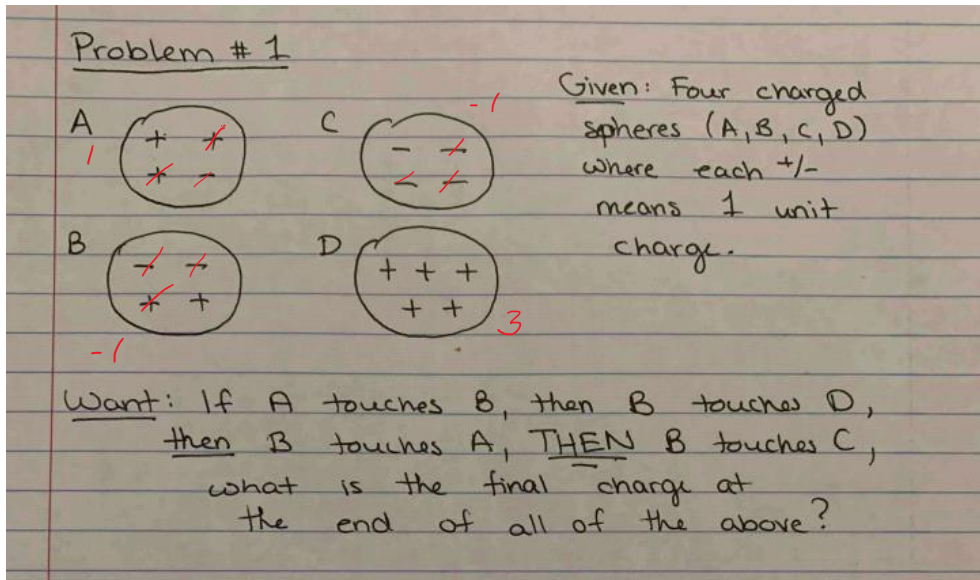 Problem # 1
A
1
+ +
+ -
C
-1
- -
- -
B
- -
+ +
-1
D
+ + +
+ +
3
Given: Four charged
spheres (A, B, C, D)
where each +/-
means 1 unit
charge.
Want: If A touches B, then B touches D,
then B touches A, THEN B touches C,
what is the final charge at
the end of all of the above?